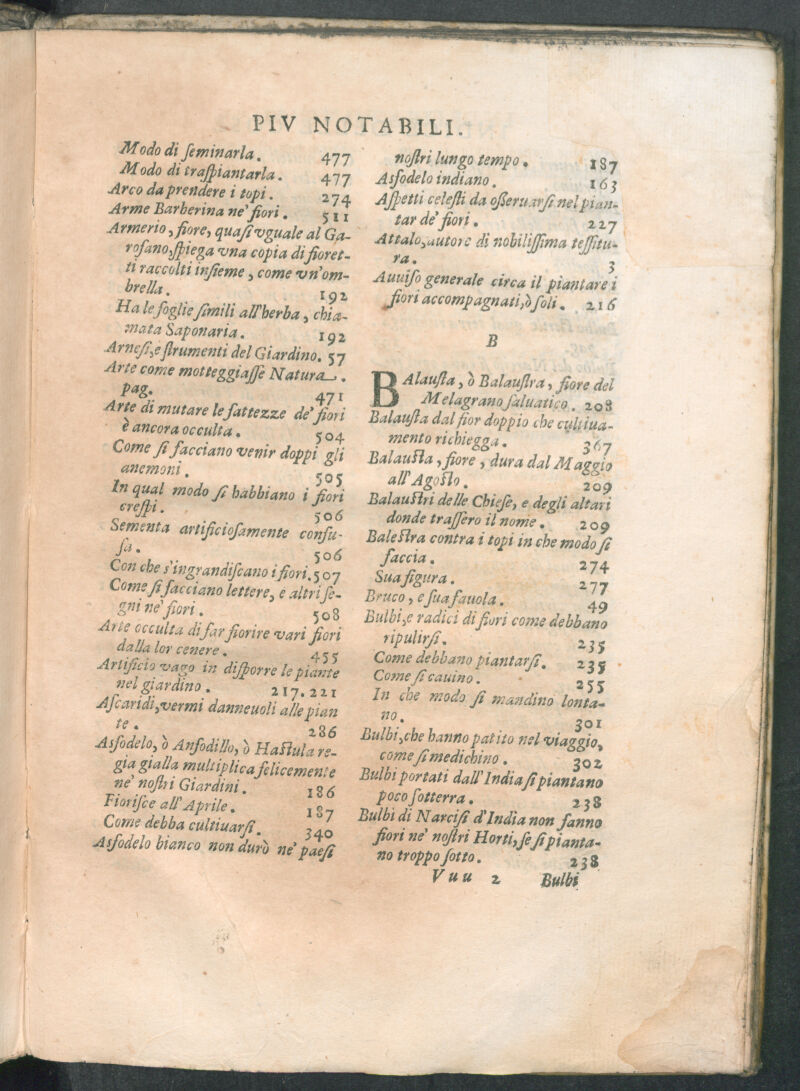 PIV NOTABILI.
Modo di ſeminarla. 477
Modo di traſpiantarla. 477
Arco da prendere i topi. 274
Arme Barberina ne' fiori. 511
Armerio, fiore, quaſi vguale al Ga-
rofano, ſpiega vna copia di fioret-
ti raccolti inſieme, come vn'om-
brella. 192
Ha le foglie ſimili all'herba, chia-
mata Saponaria. 192
Arneſi, e ſtrumenti del Giardino. 57
Arte come motteggiaſſe Natura.
pag. 471
Arte di mutare le fattezze de' fiori
è ancora occulta. 504
Come ſi facciano venir doppi gli
anemoni. 505
In qual modo ſi habbiano i fiori
creſpi. 506
Sementa artificioſamente confu-
ſa. 506
Con che s'ingrandiſcano i fiori. 507
Come ſi facciano lettere, e altri ſe-
gni ne' fiori. 508
Arte occulta di far fiorire vari fiori
dalla lor cenere. 455
Artificio vago in diſporre le piante
nel giardino. 217. 221
Aſcaridi, vermi danneuoli alle pian
te. 286
Asfodelo, ò Anfodillo, ò Haſtula re-
gia gialla multiplica felicemente
ne' noſtri Giardini. 186
Fioriſce all'Aprile. 187
Come debba cultiuarſi. 340
Asfodelo bianco non durò ne' paeſi
noſtri lungo tempo. 187
Asfodelo indiano. 163
Aſpetti celeſti da oſſeruarſi nel pian-
tar de' fiori. 227
Attalo, autore di nobiliſſima teſſitu-
ra. 3
Auuiſo generale circa il piantare i
fiori accompagnati, ò ſoli. 216
B
BAlauſta, ò Balauſtra, fiore del
Melagrano ſaluatico. 208
Balauſta dal fior doppio che cultiua-
mento richiegga. 367
Balauſta, fiore, dura dal Maggio
all'Agoſto. 209
Balauſtri delle Chieſe, e degli altari
donde traſſero il nome. 209
Baleſtra contra i topi in che modo ſi
faccia. 274
Sua figura. 277
Bruco, e ſua fauola. 49
Bulbi, e radici di fiori come debbano
ripulirſi. 235
Come debbano piantarſi. 235
Come ſi cauino. 255
In che modo ſi mandino lonta-
no. 301
Bulbi, che hanno patito nel viaggio,
come ſi medichino. 302
Bulbi portati dall'India ſi piantano
poco ſotterra. 238
Bulbi di Narciſi d'India non fanno
fiori ne' noſtri Horti, ſe ſi pianta-
no troppo ſotto. 238
Vuu 2 Bulbi